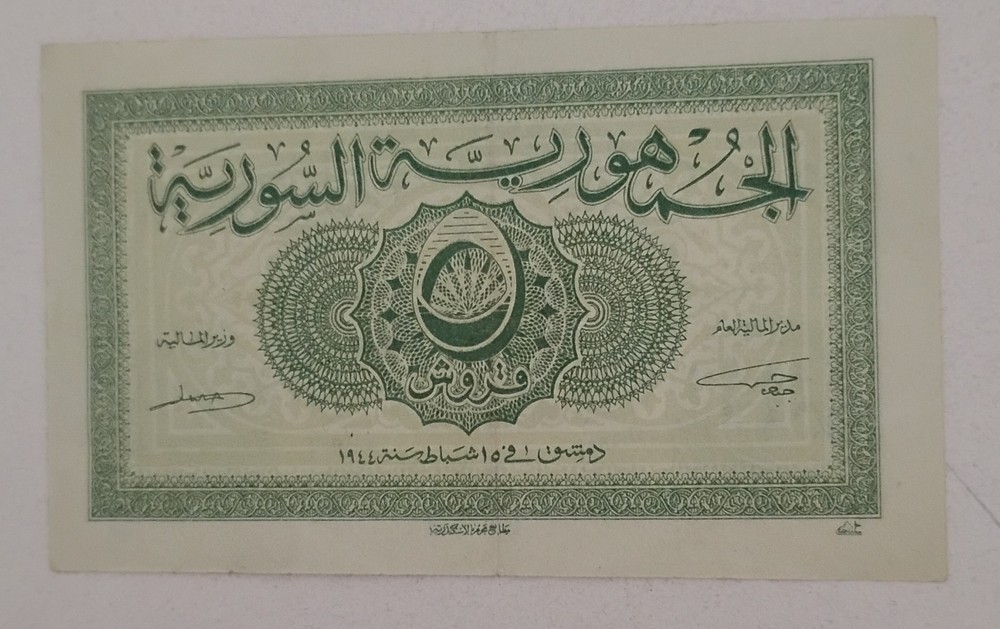 الجمهورية السورية
٥
قروش
مدير المالية العام
وزير المالية
دمشق في ١٥ شباط سنة ١٩٤٤